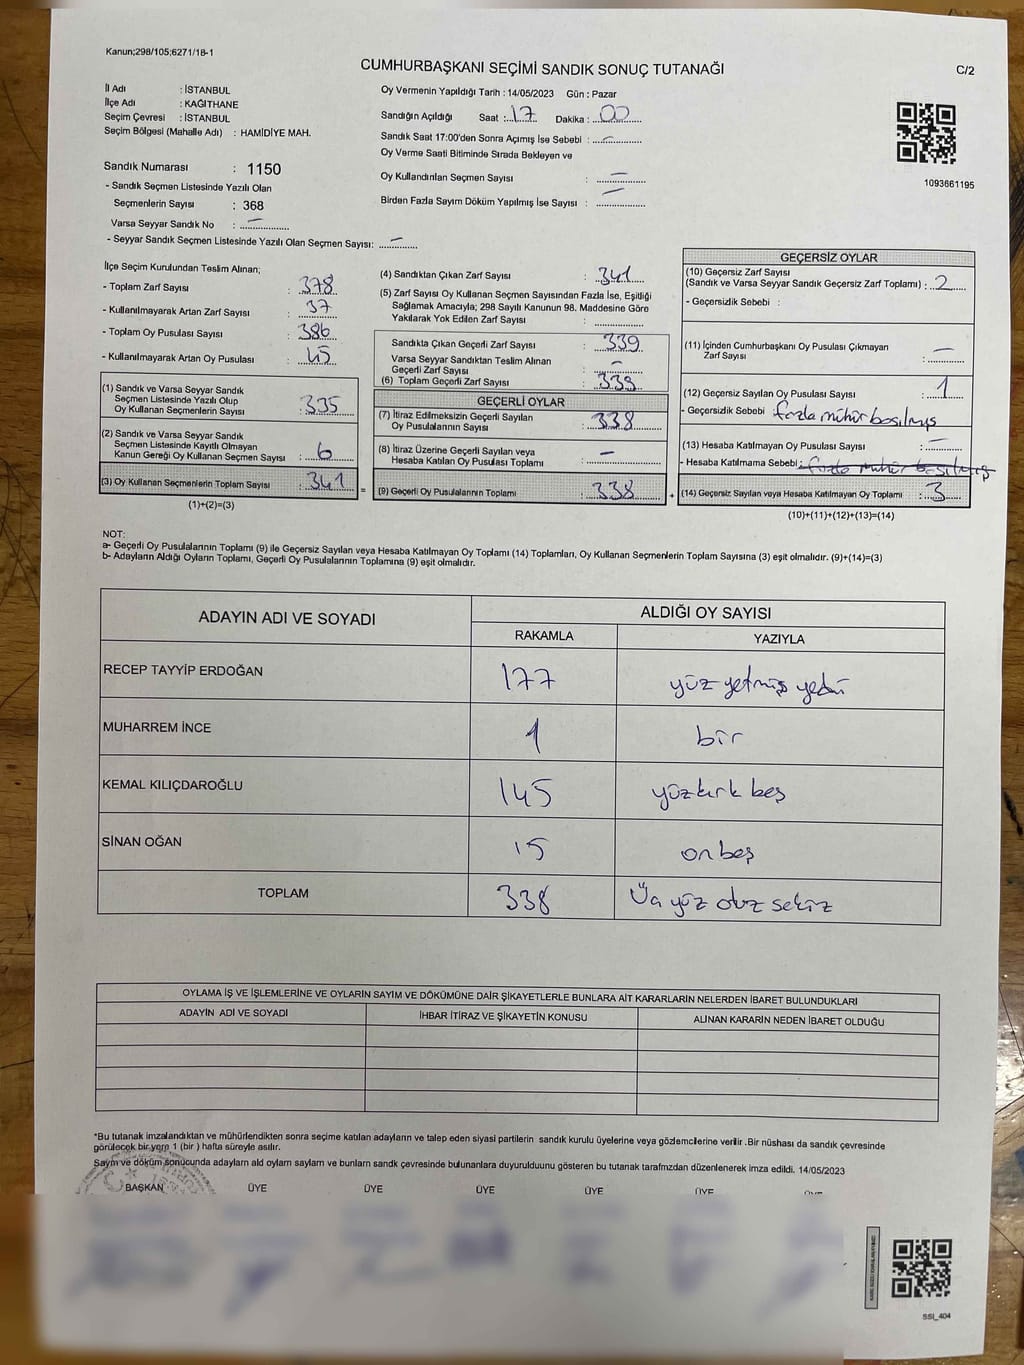 Kanun;298/105;6271/18-1
CUMHURBAŞKANI SEÇİMİ SANDIK SONUÇ TUTANAĞI
C/2
İl Adı : İSTANBUL
İlçe Adı : KAĞITHANE
Seçim Çevresi : İSTANBUL
Seçim Bölgesi (Mahalle Adı) : HAMİDİYE MAH.
Oy Vermenin Yapıldığı Tarih : 14/05/2023 Gün : Pazar
Sandığın Açıldığı Saat : 17 Dakika : 00
Sandık Saat 17:00'den Sonra Açımış İse Sebebi : –
Oy Verme Saati Bitiminde Sırada Bekleyen ve
Oy Kullandırılan Seçmen Sayısı : –
Birden Fazla Sayım Döküm Yapılmış İse Sayısı : –
1093661195
Sandık Numarası : 1150
- Sandık Seçmen Listesinde Yazılı Olan
Seçmenlerin Sayısı : 368
Varsa Seyyar Sandık No : –
- Seyyar Sandık Seçmen Listesinde Yazılı Olan Seçmen Sayısı: –
İlçe Seçim Kurulundan Teslim Alınan;
- Toplam Zarf Sayısı : 378
- Kullanılmayarak Artan Zarf Sayısı : 37
- Toplam Oy Pusulası Sayısı : 386
- Kullanılmayarak Artan Oy Pusulası : 45
(1) Sandık ve Varsa Seyyar Sandık
Seçmen Listesinde Yazılı Olup
Oy Kullanan Seçmenlerin Sayısı : 335
(2) Sandık ve Varsa Seyyar Sandık
Seçmen Listesinde Kayıtlı Olmayan
Kanun Gereği Oy Kullanan Seçmen Sayısı : 6
(3) Oy Kullanan Seçmenlerin Toplam Sayısı : 341
(1)+(2)=(3)
(4) Sandıktan Çıkan Zarf Sayısı : 341
(5) Zarf Sayısı Oy Kullanan Seçmen Sayısından Fazla İse, Eşitliği
Sağlamak Amacıyla; 298 Sayılı Kanunun 98. Maddesine Göre
Yakılarak Yok Edilen Zarf Sayısı :
Sandıkta Çıkan Geçerli Zarf Sayısı : 339
Varsa Seyyar Sandıktan Teslim Alınan
Geçerli Zarf Sayısı : –
(6) Toplam Geçerli Zarf Sayısı : 339
GEÇERLİ OYLAR
(7) İtiraz Edilmeksizin Geçerli Sayılan
Oy Pusulalarının Sayısı : 338
(8) İtiraz Üzerine Geçerli Sayılan veya
Hesaba Katılan Oy Pusulası Toplamı : –
(9) Geçerli Oy Pusulalarının Toplamı : 338
GEÇERSİZ OYLAR
(10) Geçersiz Zarf Sayısı
(Sandık ve Varsa Seyyar Sandık Geçersiz Zarf Toplamı) : 2
- Geçersizlik Sebebi :
(11) İçinden Cumhurbaşkanı Oy Pusulası Çıkmayan
Zarf Sayısı : –
(12) Geçersiz Sayılan Oy Pusulası Sayısı : 1
- Geçersizlik Sebebi : fazla mühür basılmış
(13) Hesaba Katılmayan Oy Pusulası Sayısı : –
- Hesaba Katılmama Sebebi : fazla mühür basılmış
(14) Geçersiz Sayılan veya Hesaba Katılmayan Oy Toplamı : 3
(10)+(11)+(12)+(13)=(14)
NOT:
a- Geçerli Oy Pusulalarının Toplamı (9) ile Geçersiz Sayılan veya Hesaba Katılmayan Oy Toplamı (14) Toplamları, Oy Kullanan Seçmenlerin Toplam Sayısına (3) eşit olmalıdır. (9)+(14)=(3)
b- Adayların Aldığı Oyların Toplamı, Geçerli Oy Pusulalarının Toplamına (9) eşit olmalıdır.
ADAYIN ADI VE SOYADI ALDIĞI OY SAYISI
RAKAMLA YAZIYLA
RECEP TAYYİP ERDOĞAN 177 yüz yetmiş yedi
MUHARREM İNCE 1 bir
KEMAL KILIÇDAROĞLU 145 yüzkırk beş
SİNAN OĞAN 15 onbeş
TOPLAM 338 Üç yüz otuz sekiz
OYLAMA İŞ VE İŞLEMLERİNE VE OYLARIN SAYIM VE DÖKÜMÜNE DAİR ŞİKAYETLERLE BUNLARA AİT KARARLARIN NELERDEN İBARET BULUNDUKLARI
ADAYIN ADI VE SOYADI İHBAR İTİRAZ VE ŞİKAYETİN KONUSU ALINAN KARARIN NEDEN İBARET OLDUĞU
*Bu tutanak imzalandıktan ve mühürlendikten sonra seçime katılan adayların ve talep eden siyasi partilerin sandık kurulu üyelerine veya gözlemcilerine verilir .Bir nüshası da sandık çevresinde
görülecek bir yere 1 (bir ) hafta süreyle asılır.
Sayım ve döküm sonucunda adayların ald oyların sayların ve bunların sandık çevresinde bulunanlara duyurulduunu gösteren bu tutanak tarafmzdan düzenlenerek imza edildi. 14/05/2023
BAŞKAN ÜYE ÜYE ÜYE ÜYE ÜYE
SSI_404